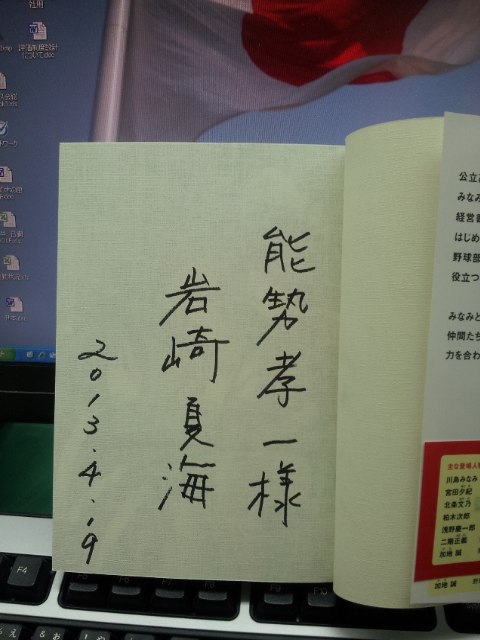 能勢孝一様
岩崎夏海
2013.4.19
公立
みなみ
経営
はじめ
野球部
役立つ
みなみと
仲間たち
力を合わ
主な登場人
川島みなみ
宮田夕紀
北条文乃
柏木次郎
浅野慶一郎
二階正義
加地 誠
加地 誠
F4